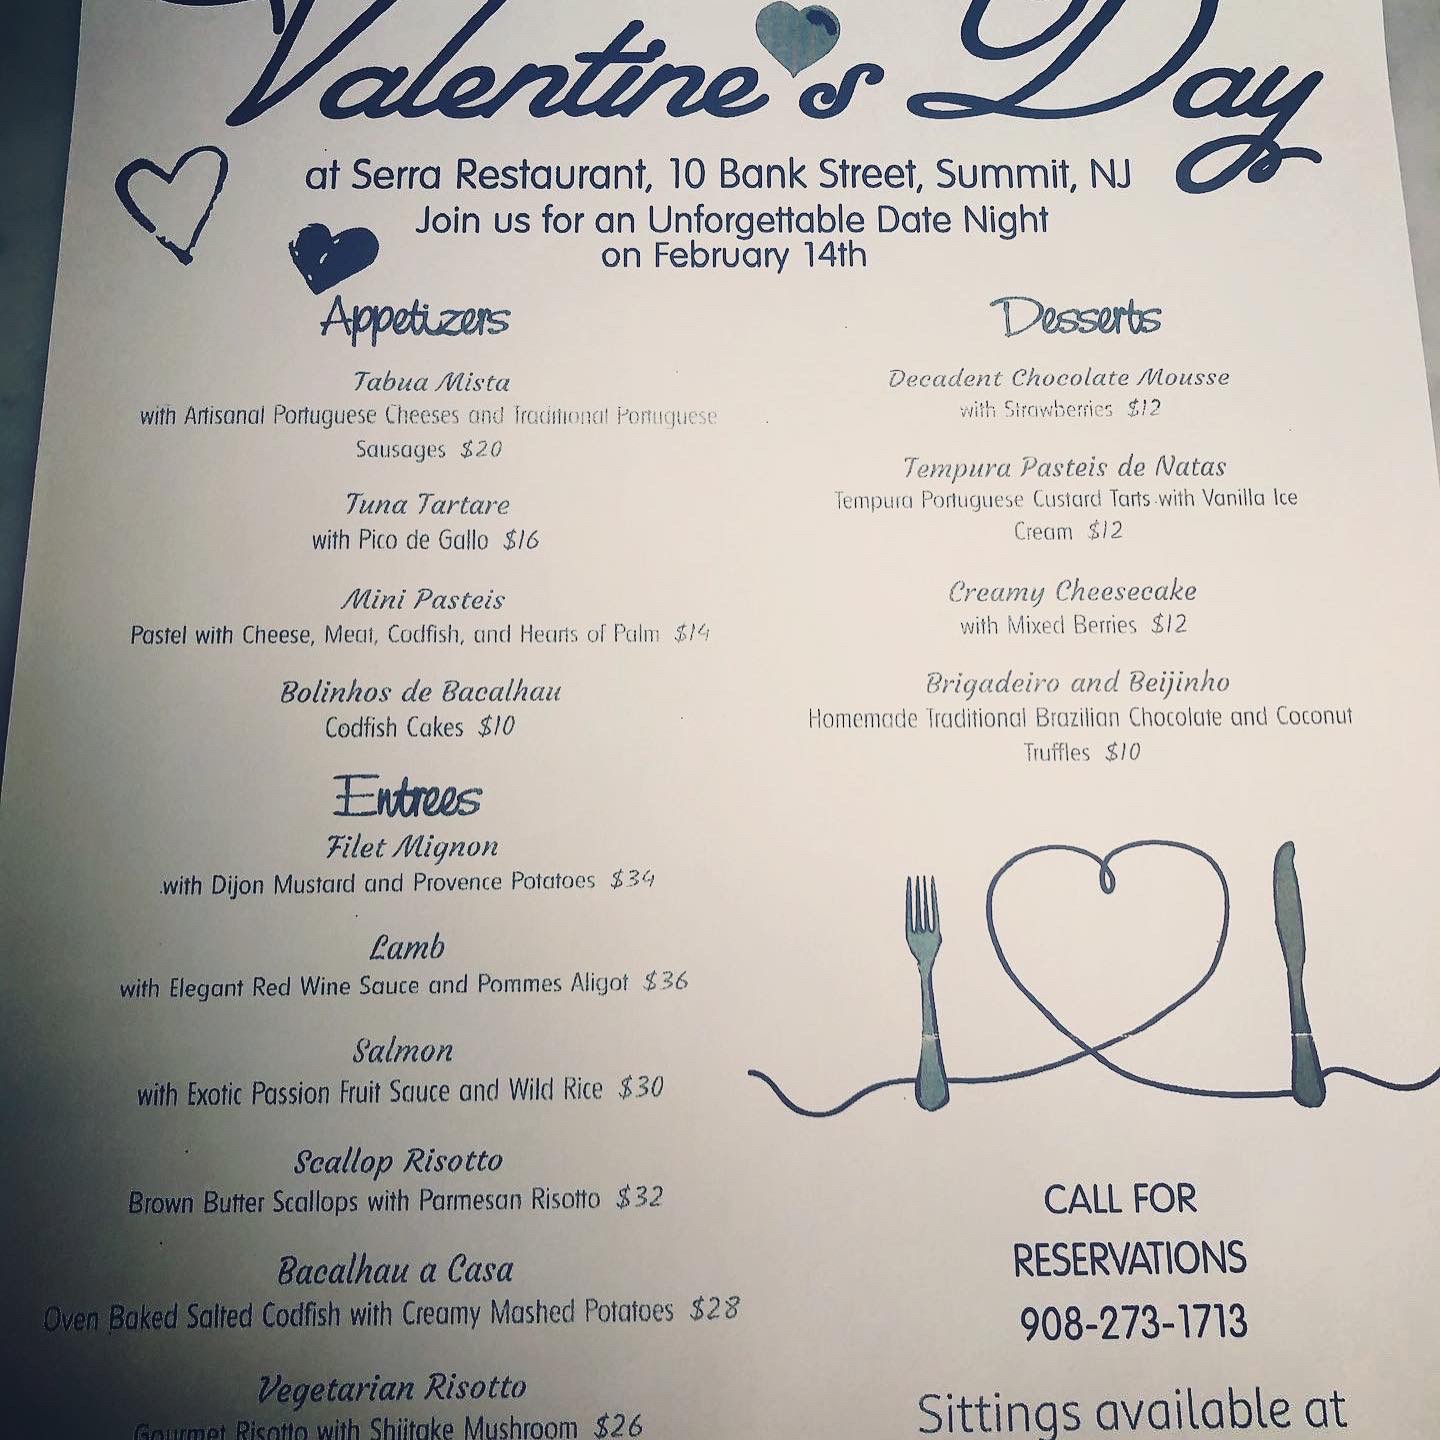 Valentine's Day
at Serra Restaurant, 10 Bank Street, Summit, NJ
Join us for an Unforgettable Date Night
on February 14th
Appetizers
Tabua Mista
with Artisanal Portuguese Cheeses and Traditional Portuguese
Sausages $20
Tuna Tartare
with Pico de Gallo $16
Mini Pasteis
Pastel with Cheese, Meat, Codfish, and Hearts of Palm $14
Bolinhos de Bacalhau
Codfish Cakes $10
Entrees
Filet Mignon
with Dijon Mustard and Provence Potatoes $34
Lamb
with Elegant Red Wine Sauce and Pommes Aligot $36
Salmon
with Exotic Passion Fruit Sauce and Wild Rice $30
Scallop Risotto
Brown Butter Scallops with Parmesan Risotto $32
Bacalhau a Casa
Oven Baked Salted Codfish with Creamy Mashed Potatoes $28
Vegetarian Risotto
Gourmet Risotto with Shiitake Mushroom $26
Desserts
Decadent Chocolate Mousse
with Strawberries $12
Tempura Pasteis de Natas
Tempura Portuguese Custard Tarts with Vanilla Ice
Cream $12
Creamy Cheesecake
with Mixed Berries $12
Brigadeiro and Beijinho
Homemade Traditional Brazilian Chocolate and Coconut
Truffles $10
CALL FOR
RESERVATIONS
908-273-1713
Sittings available at